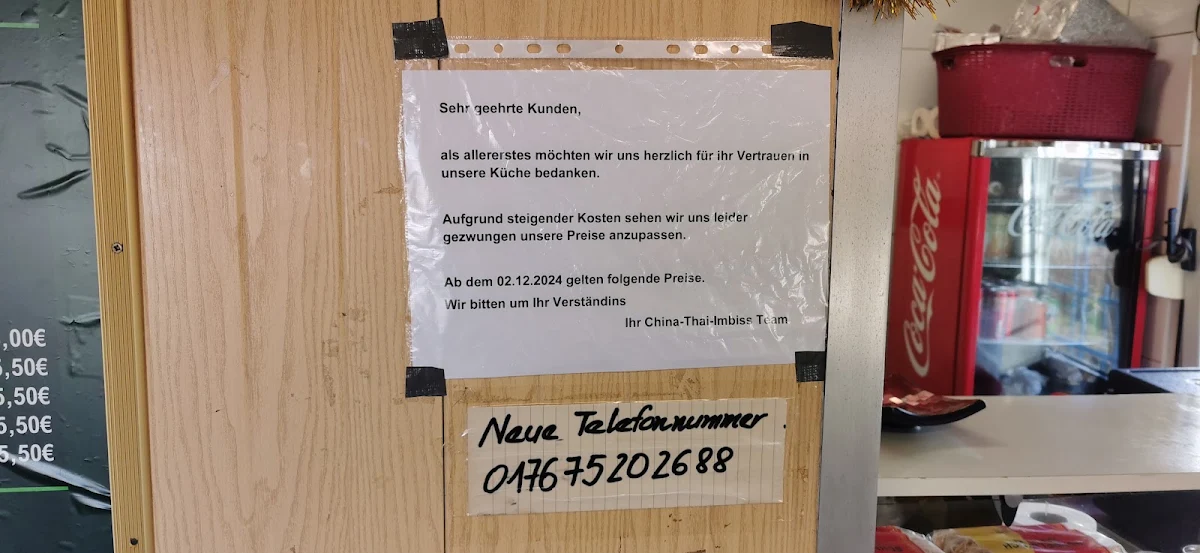 Sehr geehrte Kunden,
als allererstes möchten wir uns herzlich für ihr Vertrauen in
unsere Küche bedanken.
Aufgrund steigender Kosten sehen wir uns leider
gezwungen unsere Preise anzupassen.
Ab dem 02.12.2024 gelten folgende Preise.
Wir bitten um Ihr Verständins
Ihr China-Thai-Imbiss Team
Neue Telefonnummer
017675202688
,00€
5,50€
5,50€
5,50€
5,50€
Coca-Cola
Coca-Cola